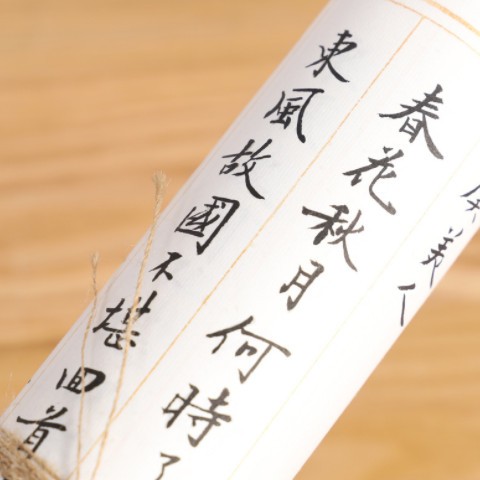 虞美人
春花秋月何時了
東風故國不堪回首